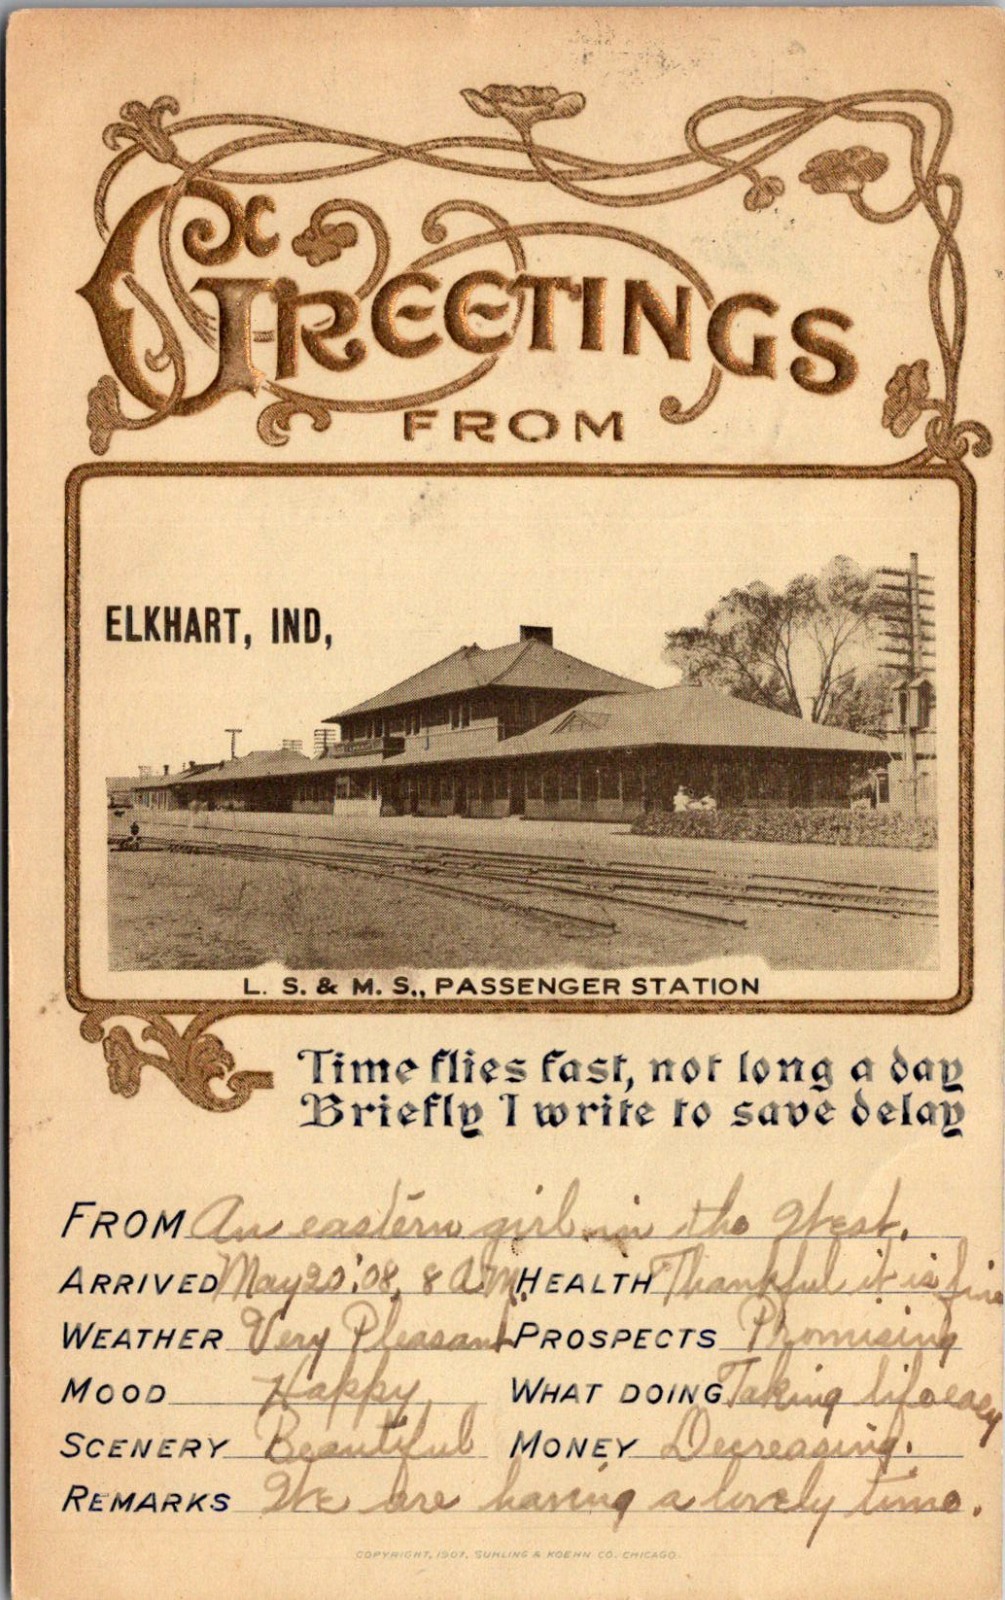 GREETINGS
FROM
ELKHART, IND,
L. S. & M. S., PASSENGER STATION
Time flies fast, not long a day
Briefly I write to save delay
FROM An eastern girl in the West.
ARRIVED May 20, '08, 8 A.M. HEALTH Thankful it is fine
WEATHER Very Pleasant PROSPECTS Promising
MOOD Happy WHAT DOING Taking life easy
SCENERY Beautiful MONEY Decreasing.
REMARKS We are having a lovely time.
COPYRIGHT, 1907, SUHLING & KOEHN CO. CHICAGO.